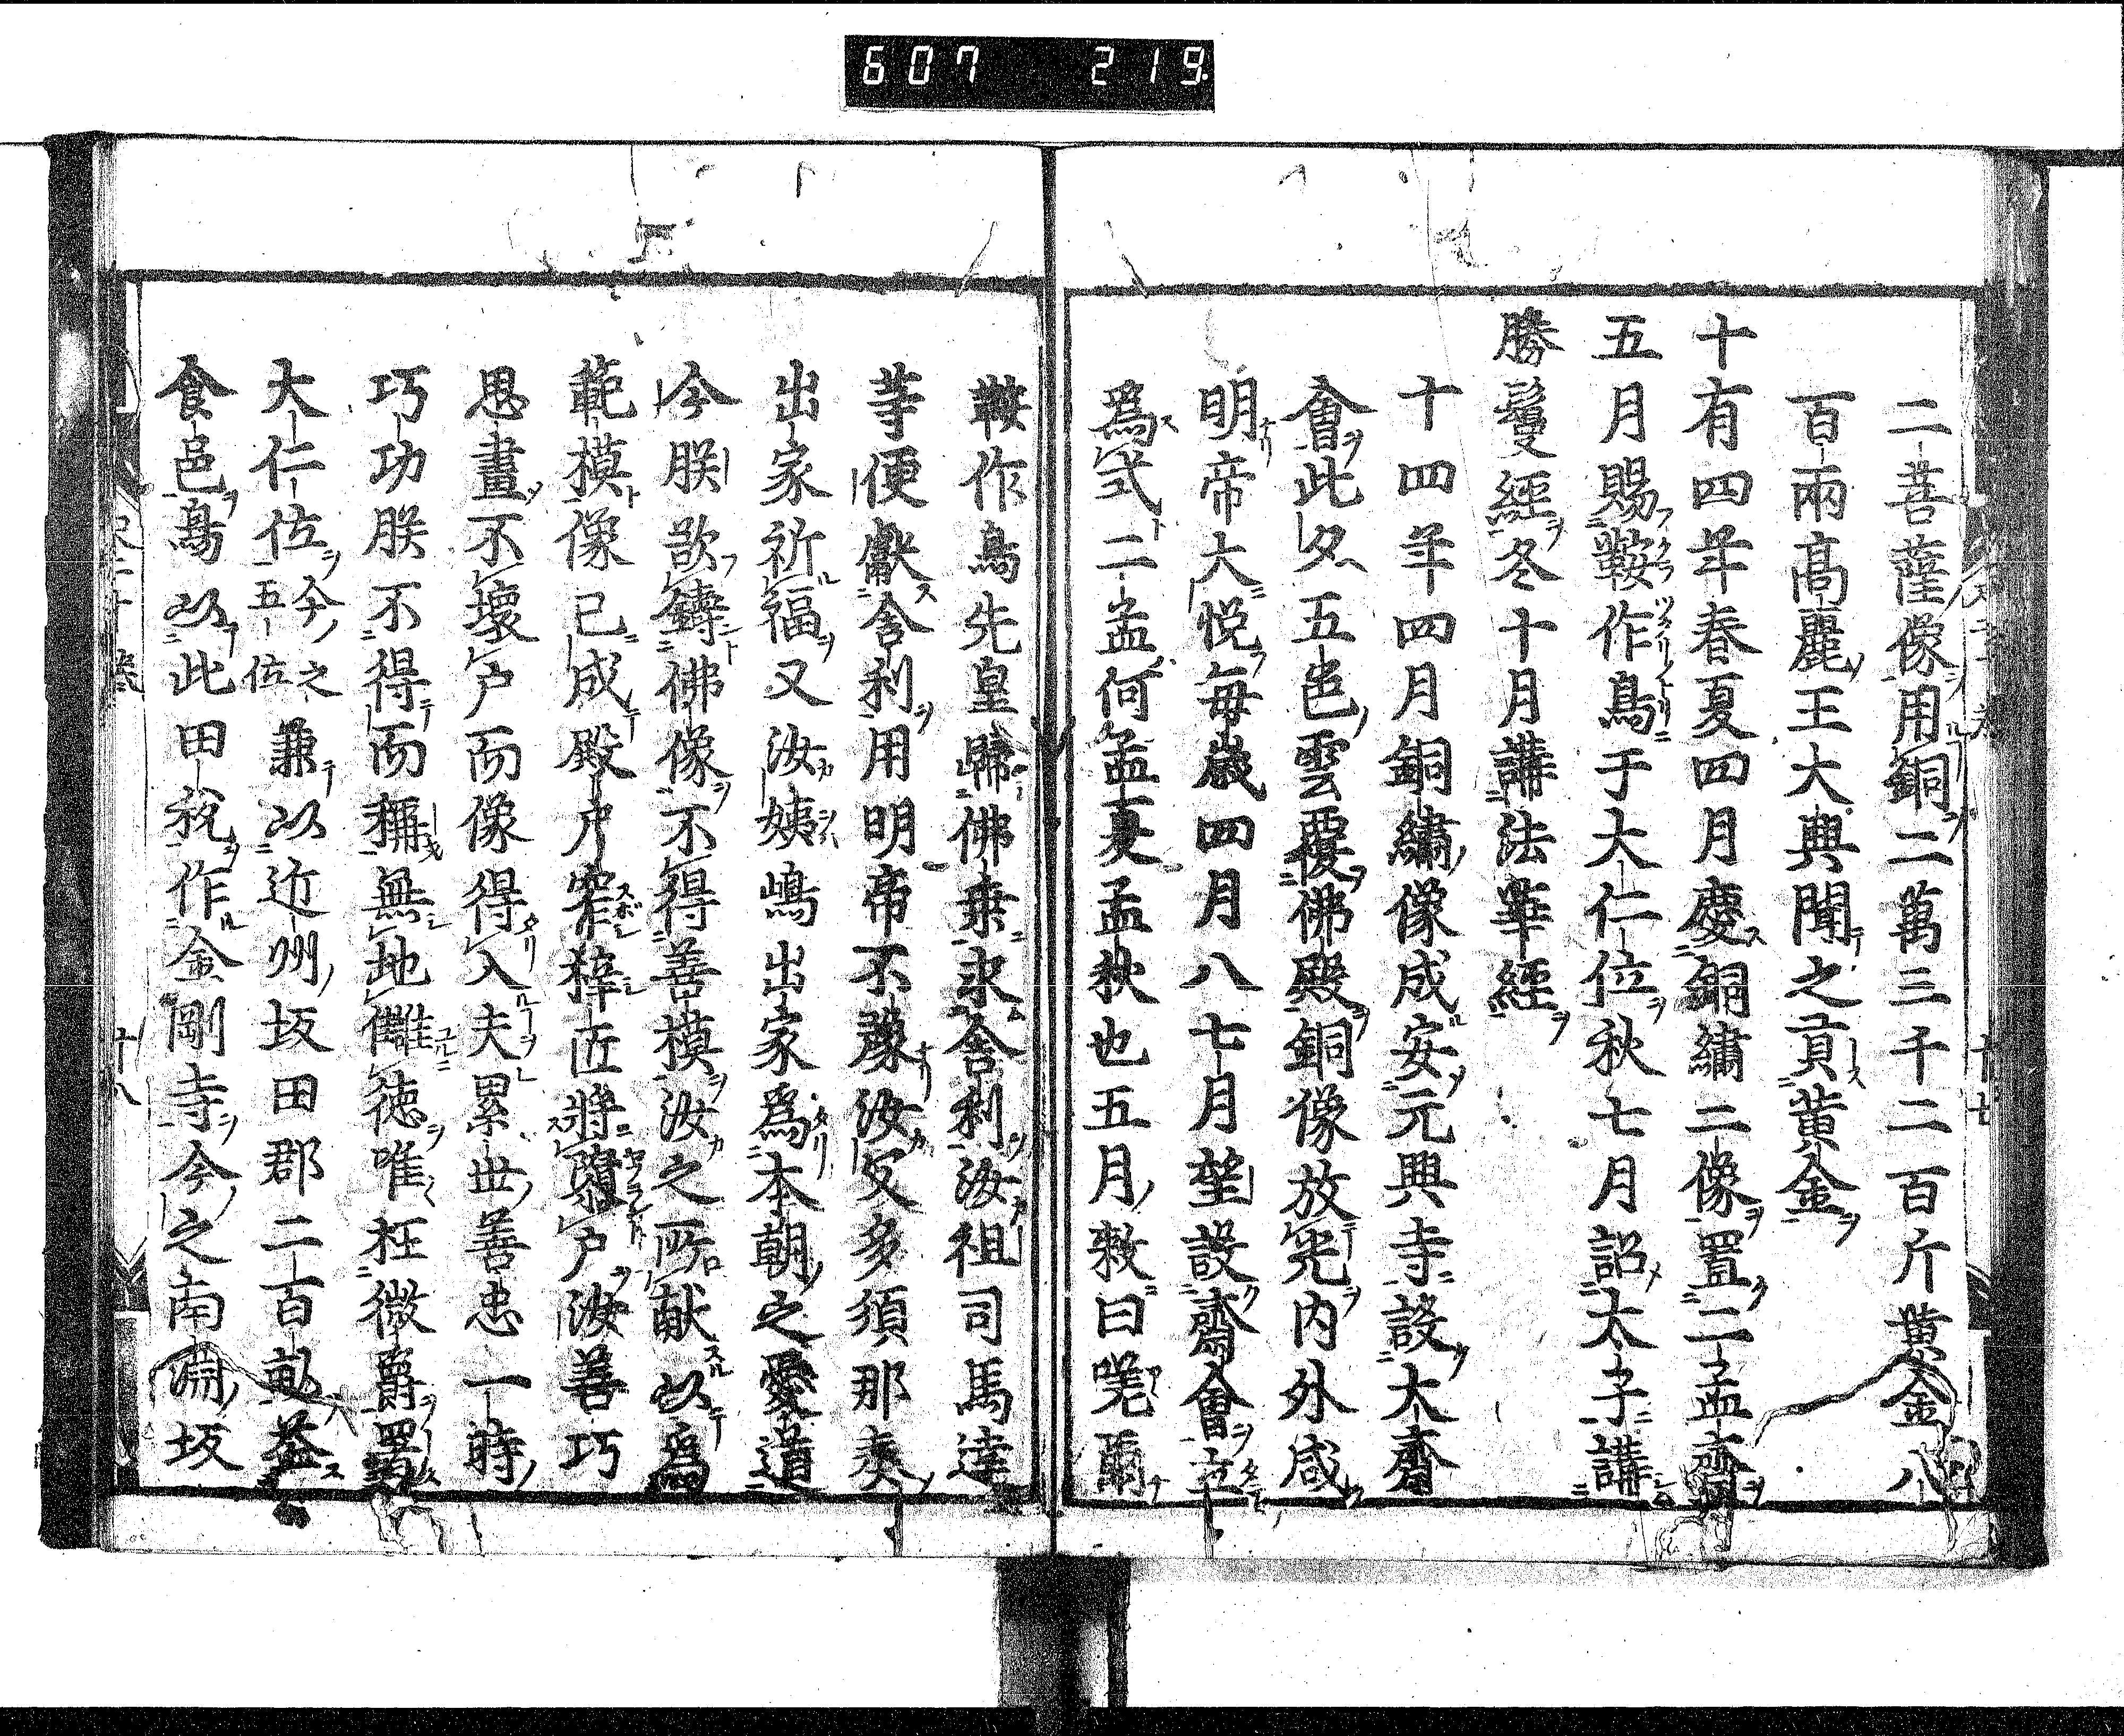 607 219
二菩薩像用銅二萬三千二百斤黃金八
百兩高麗王大興聞之貢黃金
十有四年春夏四月慶銅繡二像置二孟齋
五月賜鞍作鳥于大仁位秋七月詔太子講
勝鬘經冬十月講法華經
十四年四月銅繡像成安元興寺設大齋
會此夕五色雲覆佛殿銅像放光内外咸
明帝大悅每歲四月八七月望設齋會立
爲式二孟何孟夏孟秋也五月敕曰咲爾
鞍作鳥先皇歸佛乗求舎利汝祖司馬達
等便獻舎利用明帝不豫汝父多須那奏
出家祈福又汝姨嶋出家爲本朝之愛道
今朕欲鑄佛像不得善模汝之所献以爲
範模像已成殿戸窄狹匠將隳戸汝善巧
思畫不壞戸而像得入夫累世善忠一時
巧功朕不得而稱無地讎德唯枉微爵畧
大仁位今之五位兼以近州坂田郡二百畝益
食邑鳥以此田税作金剛寺今之南淵坂
十七
十八